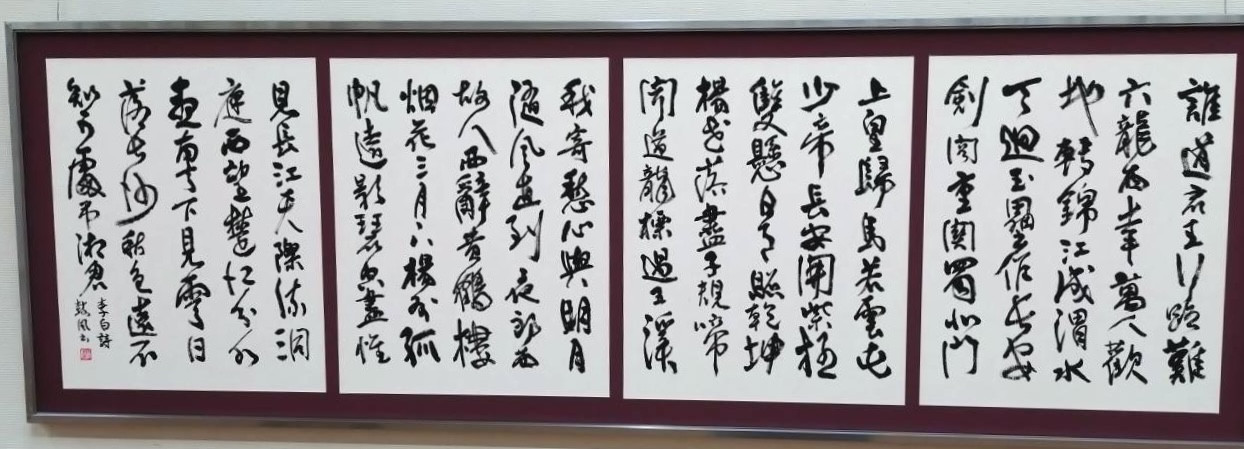 誰道君王行路難
六龍西幸萬人歡
地轉錦江成渭水
天迴玉壘作長安
劍閣重關蜀北門
上皇歸馬若雲屯
少帝長安開紫極
雙懸日月照乾坤
楊花落盡子規啼
聞道龍標過五溪
我寄愁心與明月
隨風直到夜郎西
故人西辭黄鶴樓
烟花三月下楊州孤
帆遠影碧空盡惟
見長江天際流洞
庭西望楚江分水
盡南天不見雲日
落長沙秋色遠不
知何處弔湘君
李白詩
風書